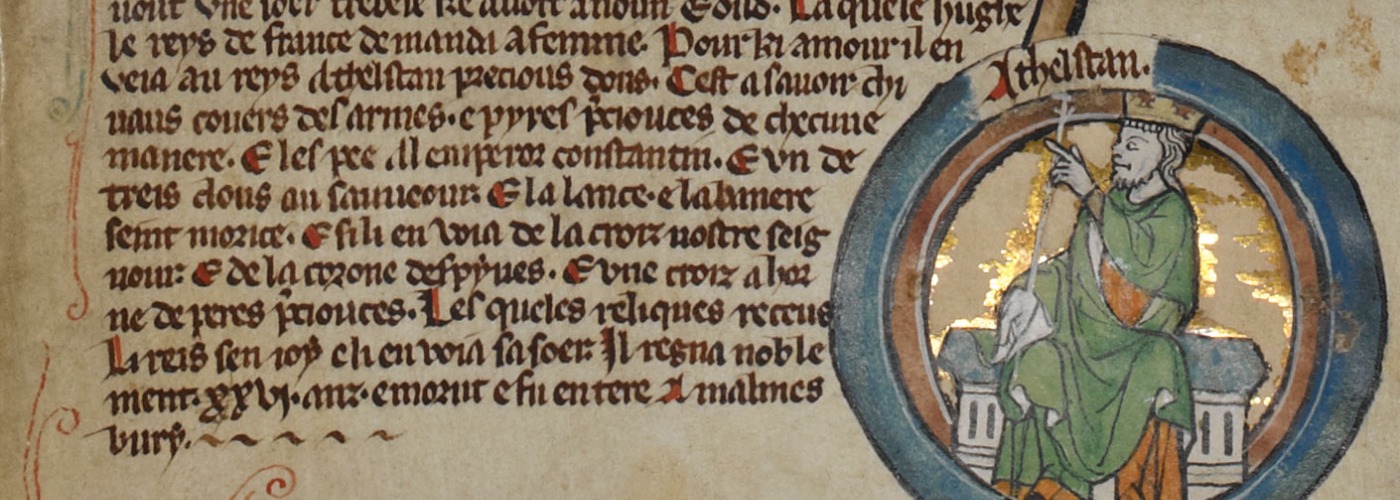 uout vne soer trebele ke auoit anoun Eoild. La quele hugḣe
le reys de france demanda a femme. Pour ki amour il en
veia au reys Athelstan precious dons. Cest a sauoir chi
uaus couers des armes. e pyres p̃ciouces de checune
manere. E les pee Al emperor constantin. E vn de
treis clous au sauueour. E la lance. e la banere
seint morice. E si li en voia de la croiz nostre seig
nour. E de la corone despynes. E vne croiz a hor
ne de peres p̃ciouces. Les queles reliques receus
Li reis sen ioy e li en voia sa soer. Il regna noble
ment. xxvj. anz. e morut e fu en tere A malmes
bury.
Athelstan.